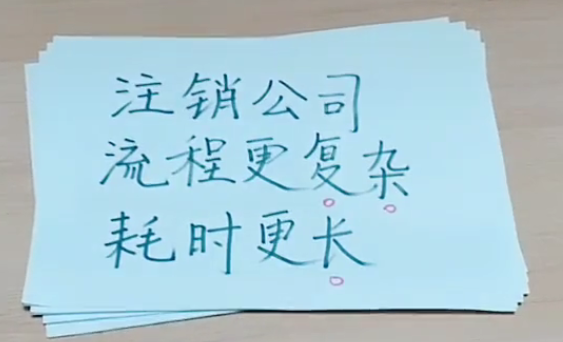 注销公司
流程更复杂
耗时更长